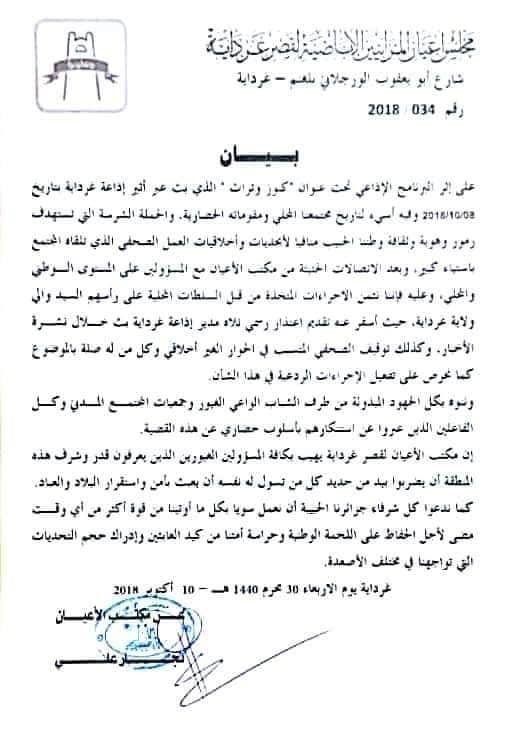 مجلس أعيان المزابيين الإباضية لقصر غرداية
شارع أبو يعقوب الورجلاني بلغنم – غرداية
رقم 034 / 2018
بـيـــان
على إثر البرنامج الإذاعي تحت عنوان "كنوز وتراث" الذي بث عبر أثير إذاعة غرداية بتاريخ
2018/10/08 وفيه أسيء لتاريخ مجتمعنا المحلي ومقوماته الحضارية، والحملة الشرسة التي تستهدف
رموز وهوية وثقافة وطننا الحبيب منافيا لأبجديات وأخلاقيات العمل الصحفي الذي تلقاه المجتمع
باستياء كبير، وبعد الاتصالات الحثيثة من مكتب الأعيان مع المسؤولين على المستوى الوطني
والمحلي، وعليه فإننا نثمن الاجراءات المتخذة من قبل السلطات المحلية على رأسهم السيد والي
ولاية غرداية، حيث أسفر عنه تقديم اعتذار رسمي تلاه مدير إذاعة غرداية بث خلال نشرة
الأخبار، وكذلك توقيف الصحفي المتسبب في الحوار الغير أخلاقي وكل من له صلة بالموضوع
كما نحرص على تفعيل الإجراءات الردعية في هذا الشأن.
وننوه بكل الجهود المبذولة من طرف الشباب الواعي الغيور وجمعيات المجتمع المدني وكل
الفاعلين الذين عبروا عن استنكارهم بأسلوب حضاري عن هذه القضية.
إن مكتب الأعيان لقصر غرداية يهيب بكافة المسؤولين الغيورين الذين يعرفون قدر وشرف هذه
المنطقة أن يضربوا بيد من حديد كل من تسول له نفسه أن يعبث بأمن واستقرار البلاد والعباد.
كما ندعوا كل شرفاء جزائرنا الحبيبة أن نعمل سويا بكل ما أوتينا من قوة أكثر من أي وقت
مضى لأجل الحفاظ على اللحمة الوطنية وحراسة أمتنا من كيد العابثين وإدراك حجم التحديات
التي تواجهنا في مختلف الأصعدة.
غرداية يوم الاربعاء 30 محرم 1440 هـ – 10 أكتوبر 2018
عن مكتب الأعيان